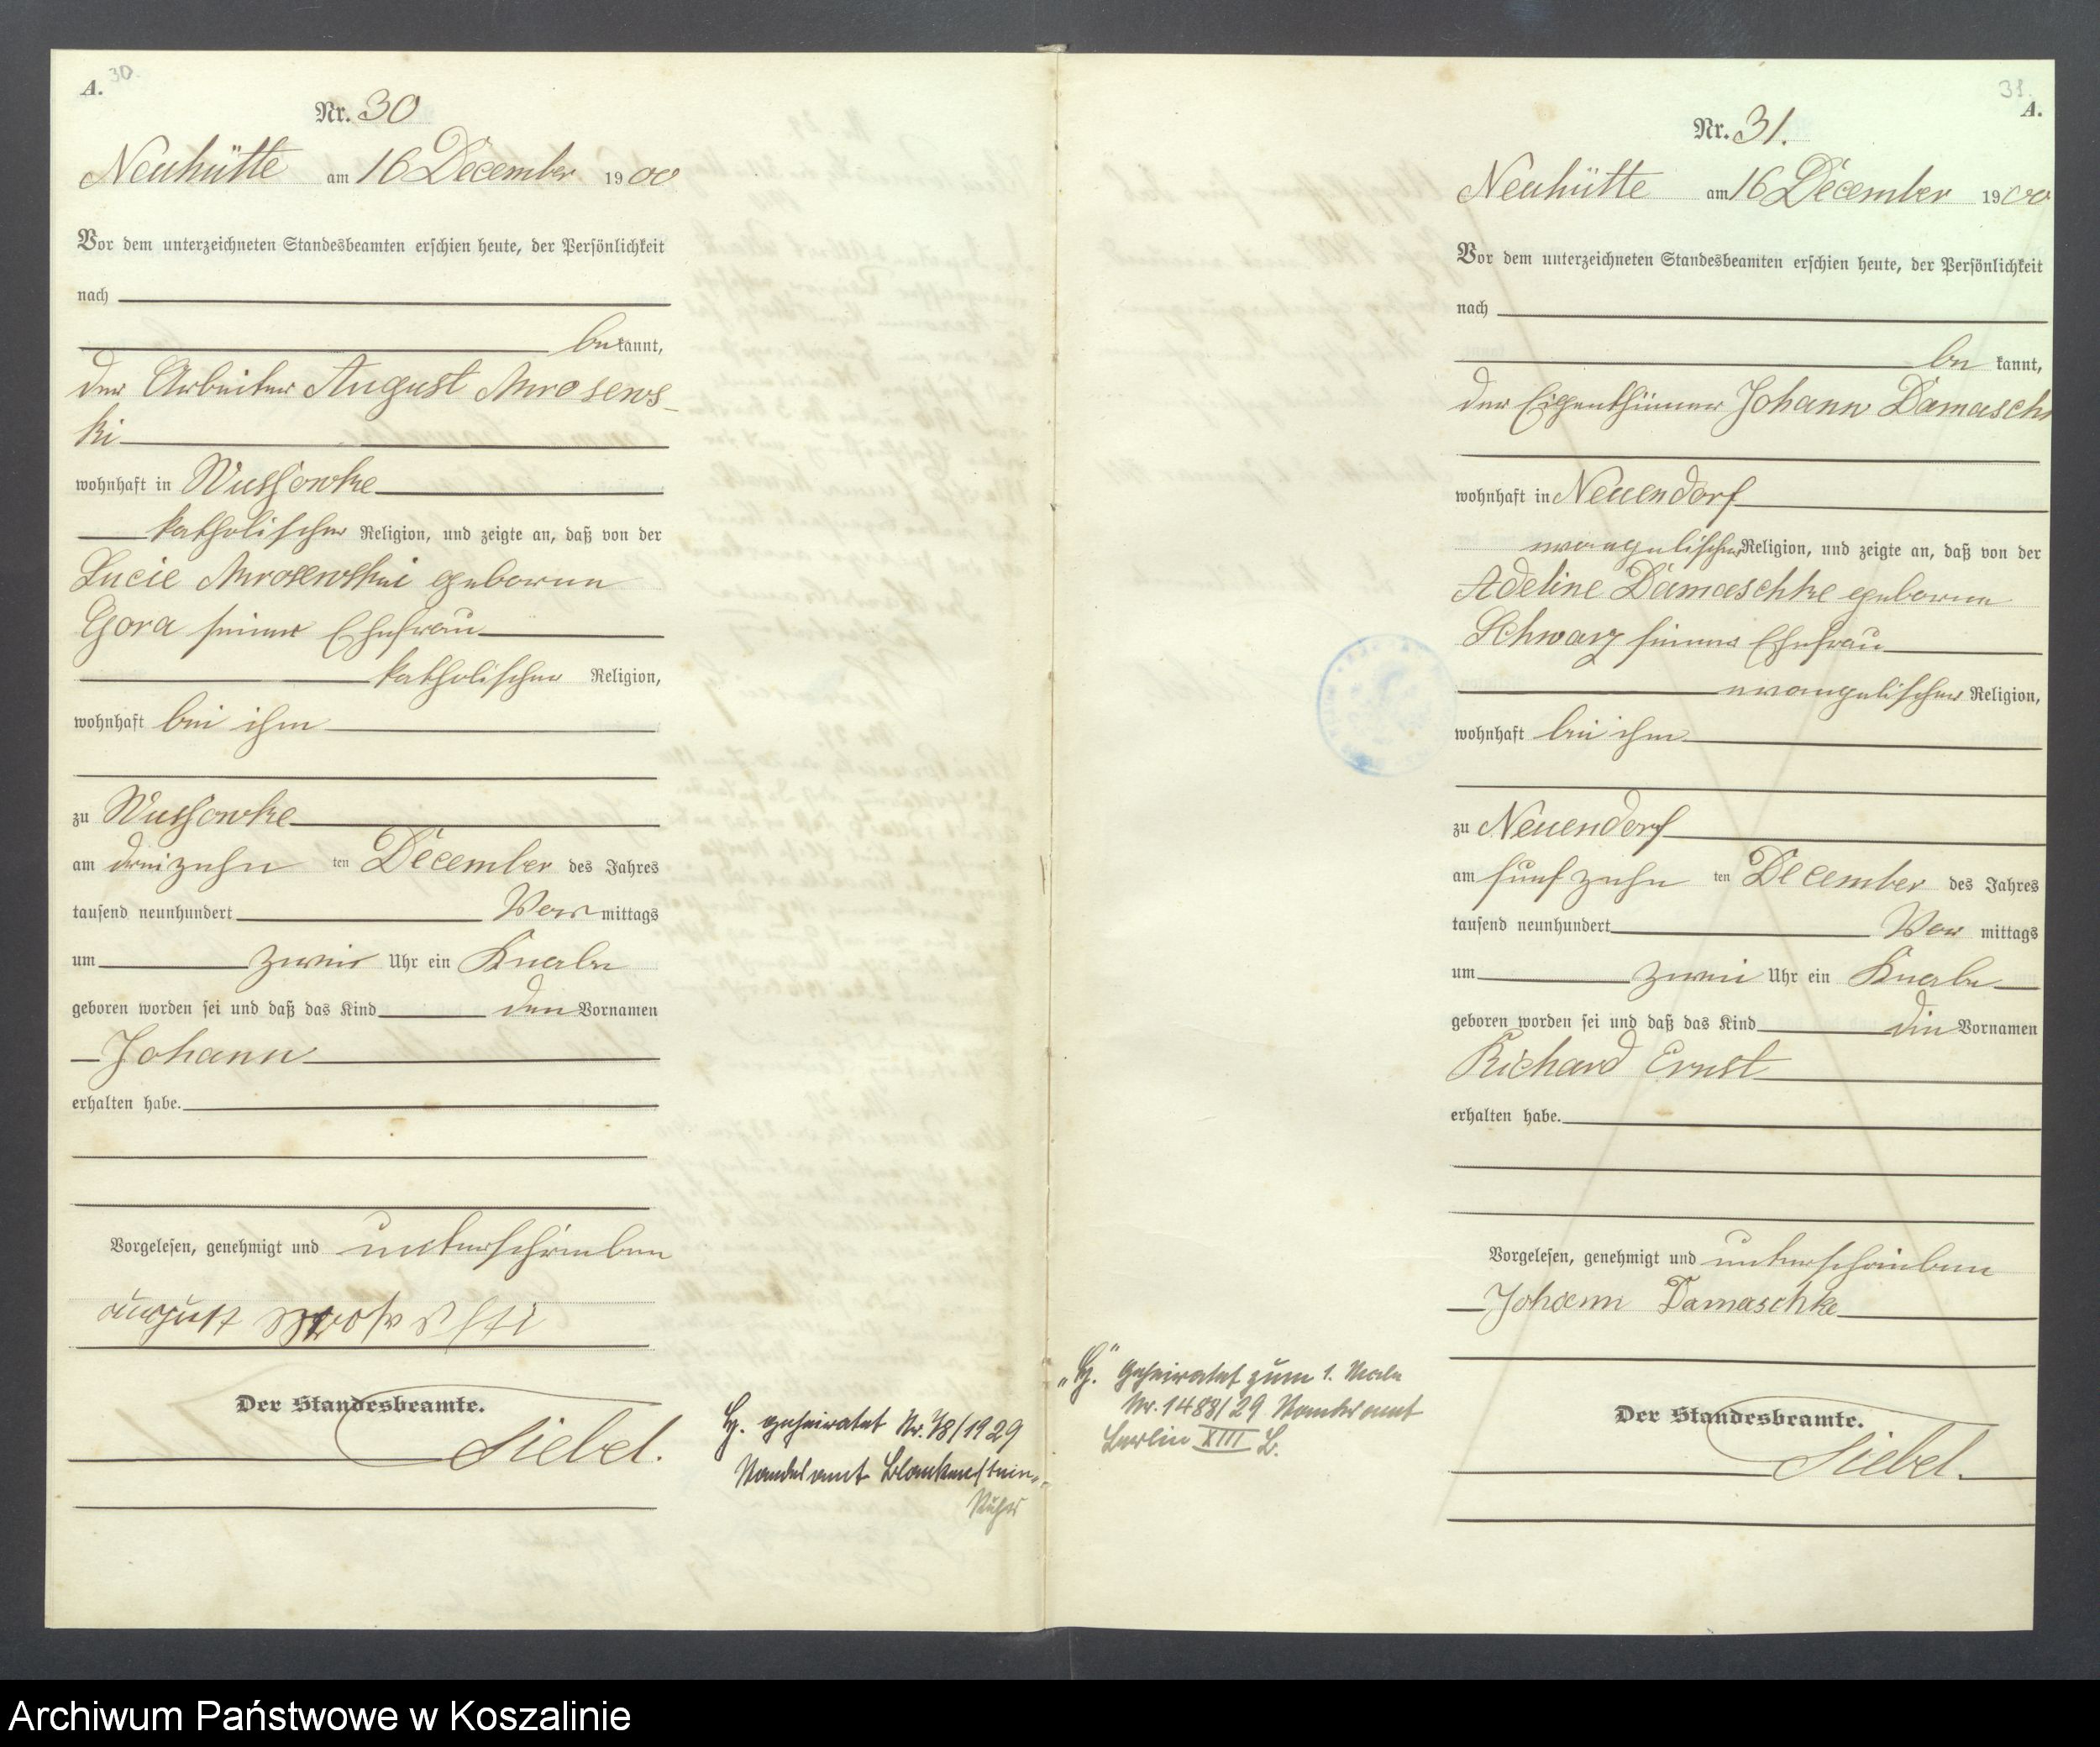 A. 30.
Nr. 30
Neuhütte am 16 December 1900
Vor dem unterzeichneten Standesbeamten erschien heute, der Persönlichkeit
nach
bekannt,
der Arbeiter August Mrosews-
ki
wohnhaft in Wussowke
katholischer Religion, und zeigte an, daß von der
Lucie Mrosewski geborene
Gora seiner Ehefrau
katholischer Religion,
wohnhaft bei ihm
zu Wussowke
am dreizehn ten December des Jahres
tausend neunhundert Vormittags
um zwei Uhr ein Knabe
geboren worden sei und daß das Kind den Vornamen
Johann
erhalten habe.
Vorgelesen, genehmigt und unterschrieben
august
Der Standesbeamte.
Siebel.
H. geheiratet Nr. 18/1929
Standesamt Blankenstein-
Ruhr
31. A.
Nr. 31.
Neuhütte am 16 December 1900
Vor dem unterzeichneten Standesbeamten erschien heute, der Persönlichkeit
nach
be kannt,
der Eigenthümer Johann Damaschke
wohnhaft in Neuendorf
evangelischer Religion, und zeigte an, daß von der
Adeline Damaschke geborene
Schwarz seiner Ehefrau
evangelischer Religion,
wohnhaft bei ihm
zu Neuendorf
am fünfzehn ten December des Jahres
tausend neunhundert Vor mittags
um zwei Uhr ein Knabe
geboren worden sei und daß das Kind die Vornamen
Richard Ernst
erhalten habe.
Vorgelesen, genehmigt und unterschrieben
Johann Damaschke
Der Standesbeamte.
Siebel.
„H." Geheiratet zum 1. Male
Nr. 1488/29 Standesamt
Berlin XIII B.
Archiwum Państwowe w Koszalinie